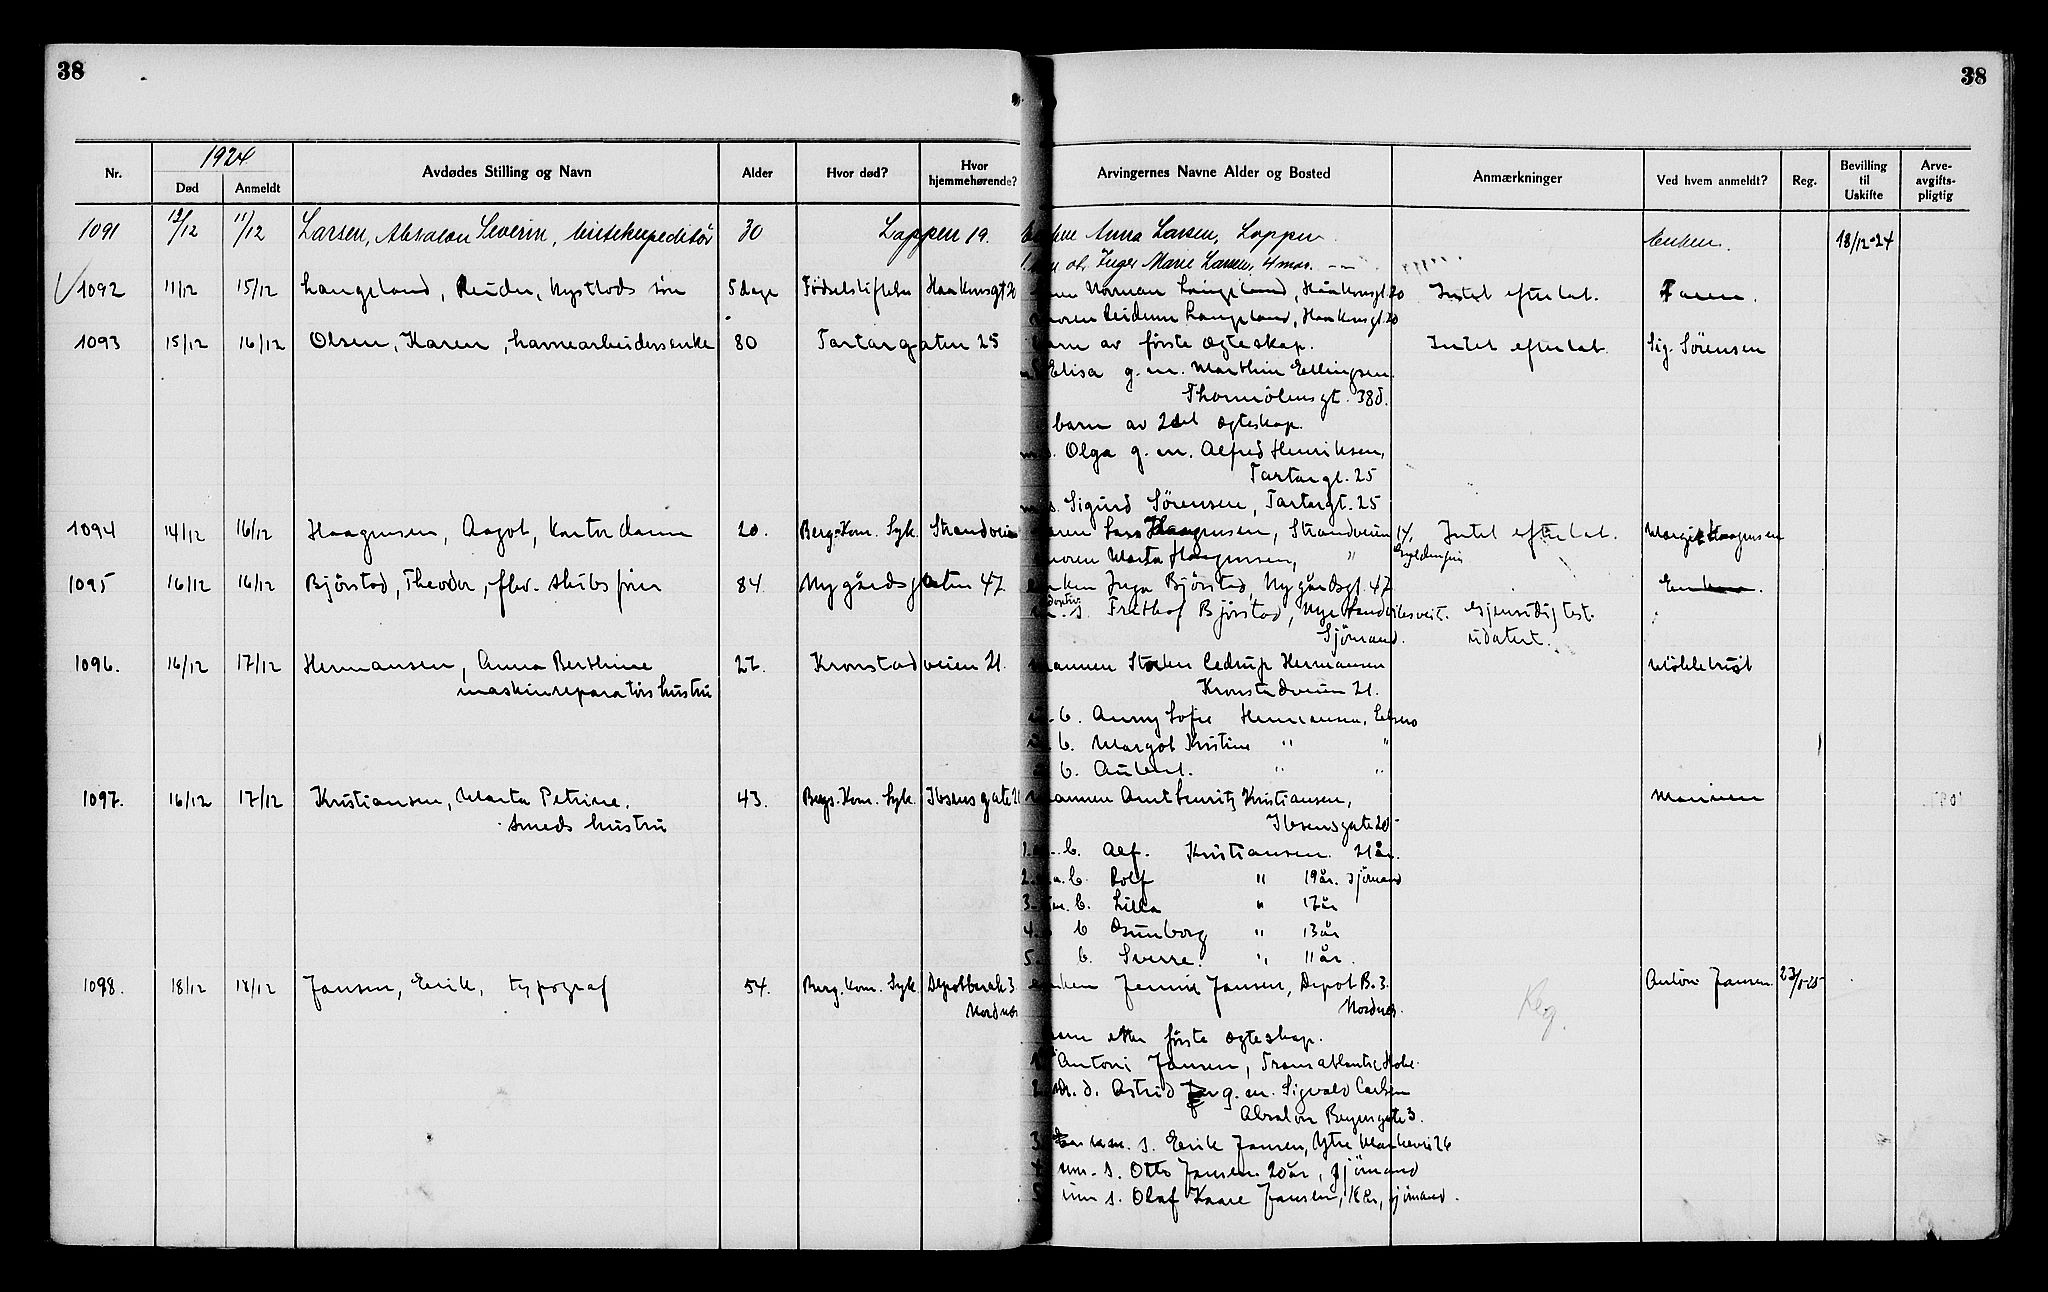 38
38
Nr.
1924
Død
Anmeldt
Avdødes Stilling og Navn
Alder
Hvor død?
Hvor hjemmehørende?
Arvingernes Navne Alder og Bosted
Anmærkninger
Ved hvem anmeldt?
Reg.
Bevilling til Uskifte
Arve-avgifts-pligtig
1091 11/12 Larsen, Absalon Severin, 30 Loppen 19. Anna Larsen, Loppen Enken. 18/12-24
Inger Marie Larsen, 4 mdr.
1092 11/12 15/12 Langeland, søn 5 dage Haakonsgt 20 Norman Langeland, Haakonsgt. 20 Intet efterlat. Faren.
moren Langeland, Haakonsgt. 20
1093 15/12 16/12 Olsen, Karen, havnearbeidersenke 80 Tartargaten 25 barn av første ægteskap. Intet efterlat. Sig. Sørensen
Elisa g. m. Marthin Ellingsen
Thormølensgt. 38d.
barn av 2det ægteskap.
Olga g. m. Alfred Henriksen,
Tartargt. 25
s. Sigurd Sørensen, Tartargt. 25
1094 14/12 16/12 Haagensen, Aagot, kontordame 20. Berg. Kom. Syk. Strandveien faren Lars Haagensen, Strandveien 14, Intet efterlat. Margit Haagensen
moren Marta Haagensen, "
1095 16/12 16/12 Bjørstad, Theodor, fhv. skibsfører 84 Nygårdsgaten 47 enken Inga Bjørstad, Nygårdsgt. 47 Enken.
s. Frithof Bjørstad, Nye Sandviksvei gjensidig test.
Sjømand. udatert.
1096. 16/12 17/12 Hermansen, Anna Berthine 27. Kronstadveien 21. mannen Hermansen
maskinreparatørs hustru Kronstadveien 21.
b. Anny Sofie Hermansen,
b. Margot Kristine " "
b. " "
1097. 16/12 17/12 Kristiansen, Marta Petrine. 43. Bergs. Kom. Syk. Ibsensgate mannen Kristiansen, Mannen
smeds hustru Ibsensgate 20
1. b. Alf. Kristiansen. 21 år.
2. b. Rolf " 19 år. sjømand
3. b. Lilla " 17 år
4. b " 13 år
5. b. Sverre. " 11 år.
1098. 18/12 18/12 Jansen, Erik, typograf 54. Berg. Kom. Syk. Depotbarak 3 enken Jennie Jansen, Depot B. 3. Antoni Jansen 23/1-25
Nordnes Nordnes. Reg.
barn etter første ægteskap.
Antoni Jansen, Transatlantic Hotel
2 d. Astrid g. m. Sigvald Carlsen
Absalon Beyersgate 3.
3 s. Erik Jansen, Ytre Markevei 26
4 um. s. Otto Jansen 20 år, sjømand
um s. Olaf Kaare Jansen, 18 år, sjømand.